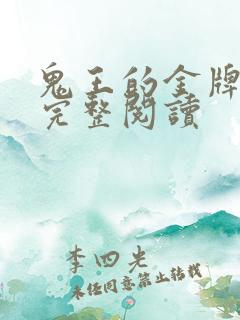 鬼王的金牌
完整閱讀
李四光
未经同意禁止转载